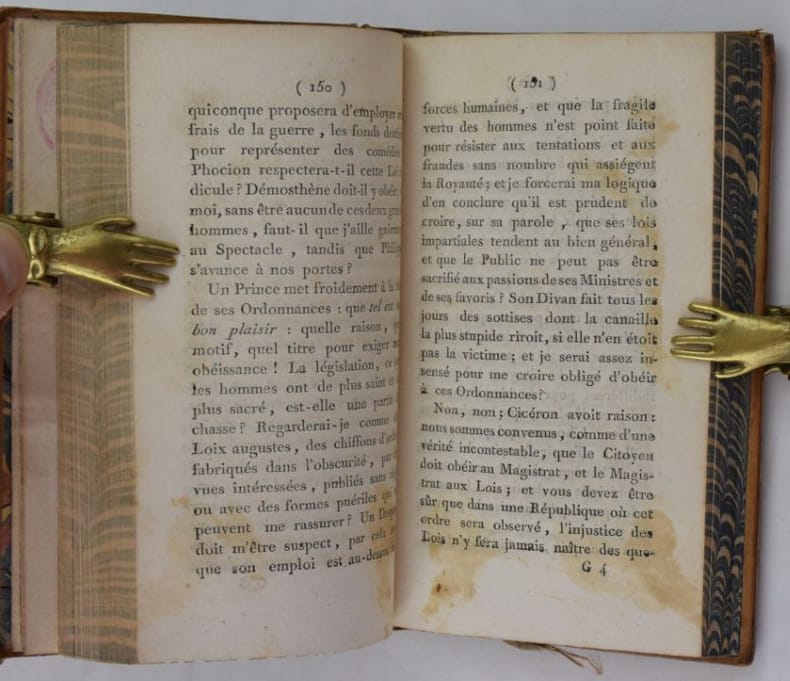 ( 150 )
quiconque proposera d'employer
frais de la guerre, les fonds
pour représenter des
Phocion respectera-t-il cette
dicule ? Démosthène doit-il y
moi, sans être aucun de ces deux
hommes, faut-il que j'aille
au Spectacle, tandis que
s'avance à nos portes ?
Un Prince met froidement à la
de ses Ordonnances : que tel est
bon plaisir : quelle raison,
motif, quel titre pour exiger
obéissance ! La législation,
les hommes ont de plus saint
plus sacré, est-elle une partie
chasse ? Regarderai-je comme
Loix augustes, des chiffons
fabriqués dans l'obscurité,
vues intéressées, publiés sans
ou avec des formes puériles
peuvent me rassurer ? Un
doit m'être suspect, par cela
que son emploi est au-dessus
( 151 )
forces humaines, et que la fragile
vertu des hommes n'est point faite
pour résister aux tentations et aux
fraudes sans nombre qui assiégent
la Royauté; et je forcerai ma logique
d'en conclure qu'il est prudent de
croire, sur sa parole, que ses lois
impartiales tendent au bien général,
et que le Public ne peut pas être
sacrifié aux passions de ses Ministres et
de ses favoris ? Son Divan fait tous les
jours des sottises dont la canaille
la plus stupide riroit, si elle n'en étoit
pas la victime ; et je serai assez in-
sensé pour me croire obligé d'obéir
à ces Ordonnances?
Non, non ; Cicéron avoit raison :
nous sommes convenus, comme d'une
vérité incontestable, que le Citoyen
doit obéir au Magistrat, et le Magis-
trat aux Lois ; et vous devez être
sûr que dans une République où cet
ordre sera observé, l'injustice des
Lois n'y fera jamais naître des que-
G 4